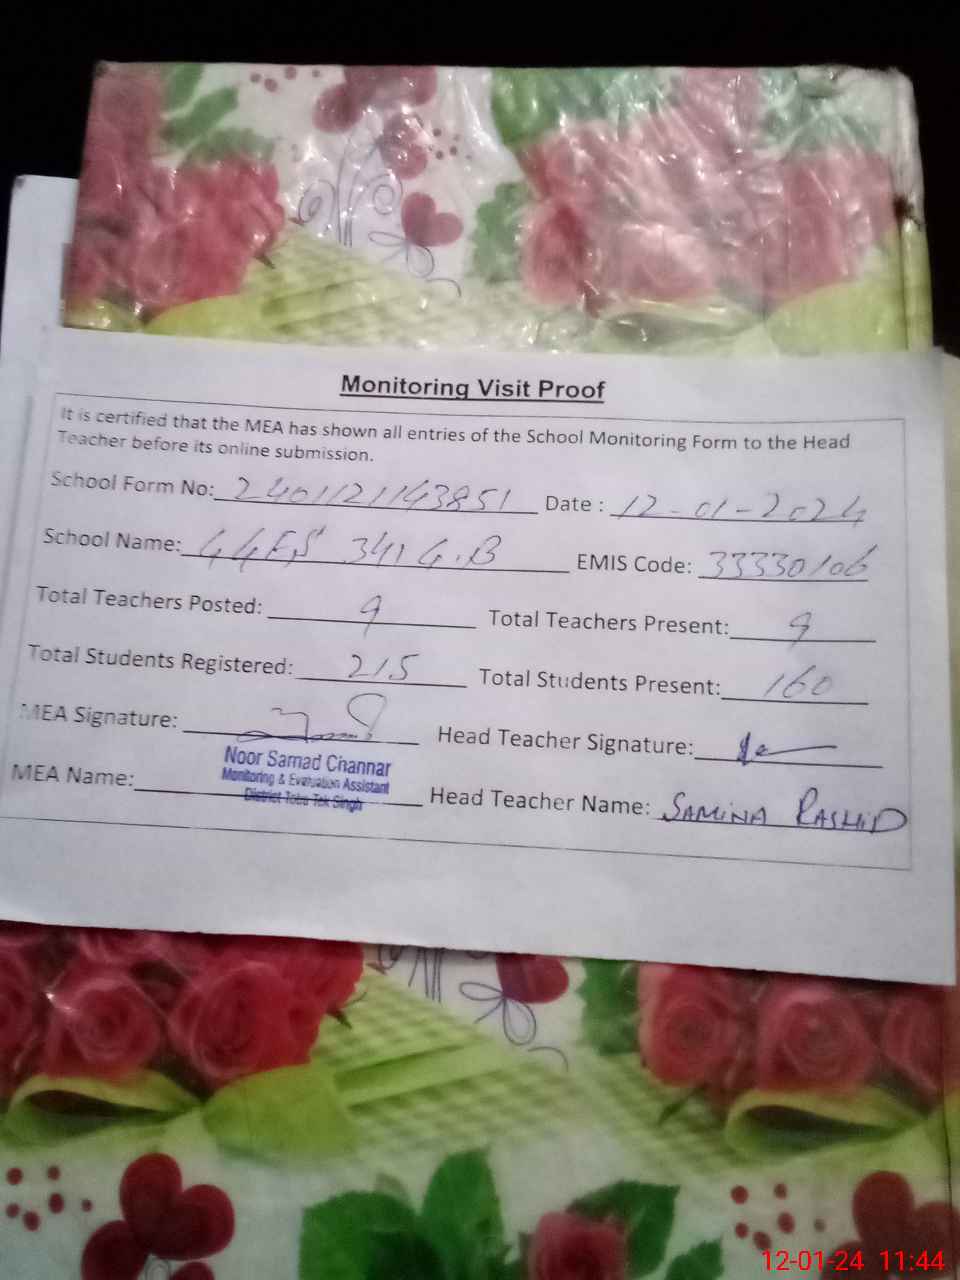 Monitoring Visit Proof
It is certified that the MEA has shown all entries of the School Monitoring Form to the Head
Teacher before its online submission.
School Form No: 2401121143851 Date : 12-01-2024
School Name: GGES 341 G.B EMIS Code: 33330106
Total Teachers Posted: 9 Total Teachers Present: 9
Total Students Registered: 215 Total Students Present: 160
MEA Signature: Head Teacher Signature:
Noor Samad Channar
Monitoring & Evaluation Assistant
District Toba Tek Singh
MEA Name: Head Teacher Name: SAMINA RASHID
12-01-24 11:44